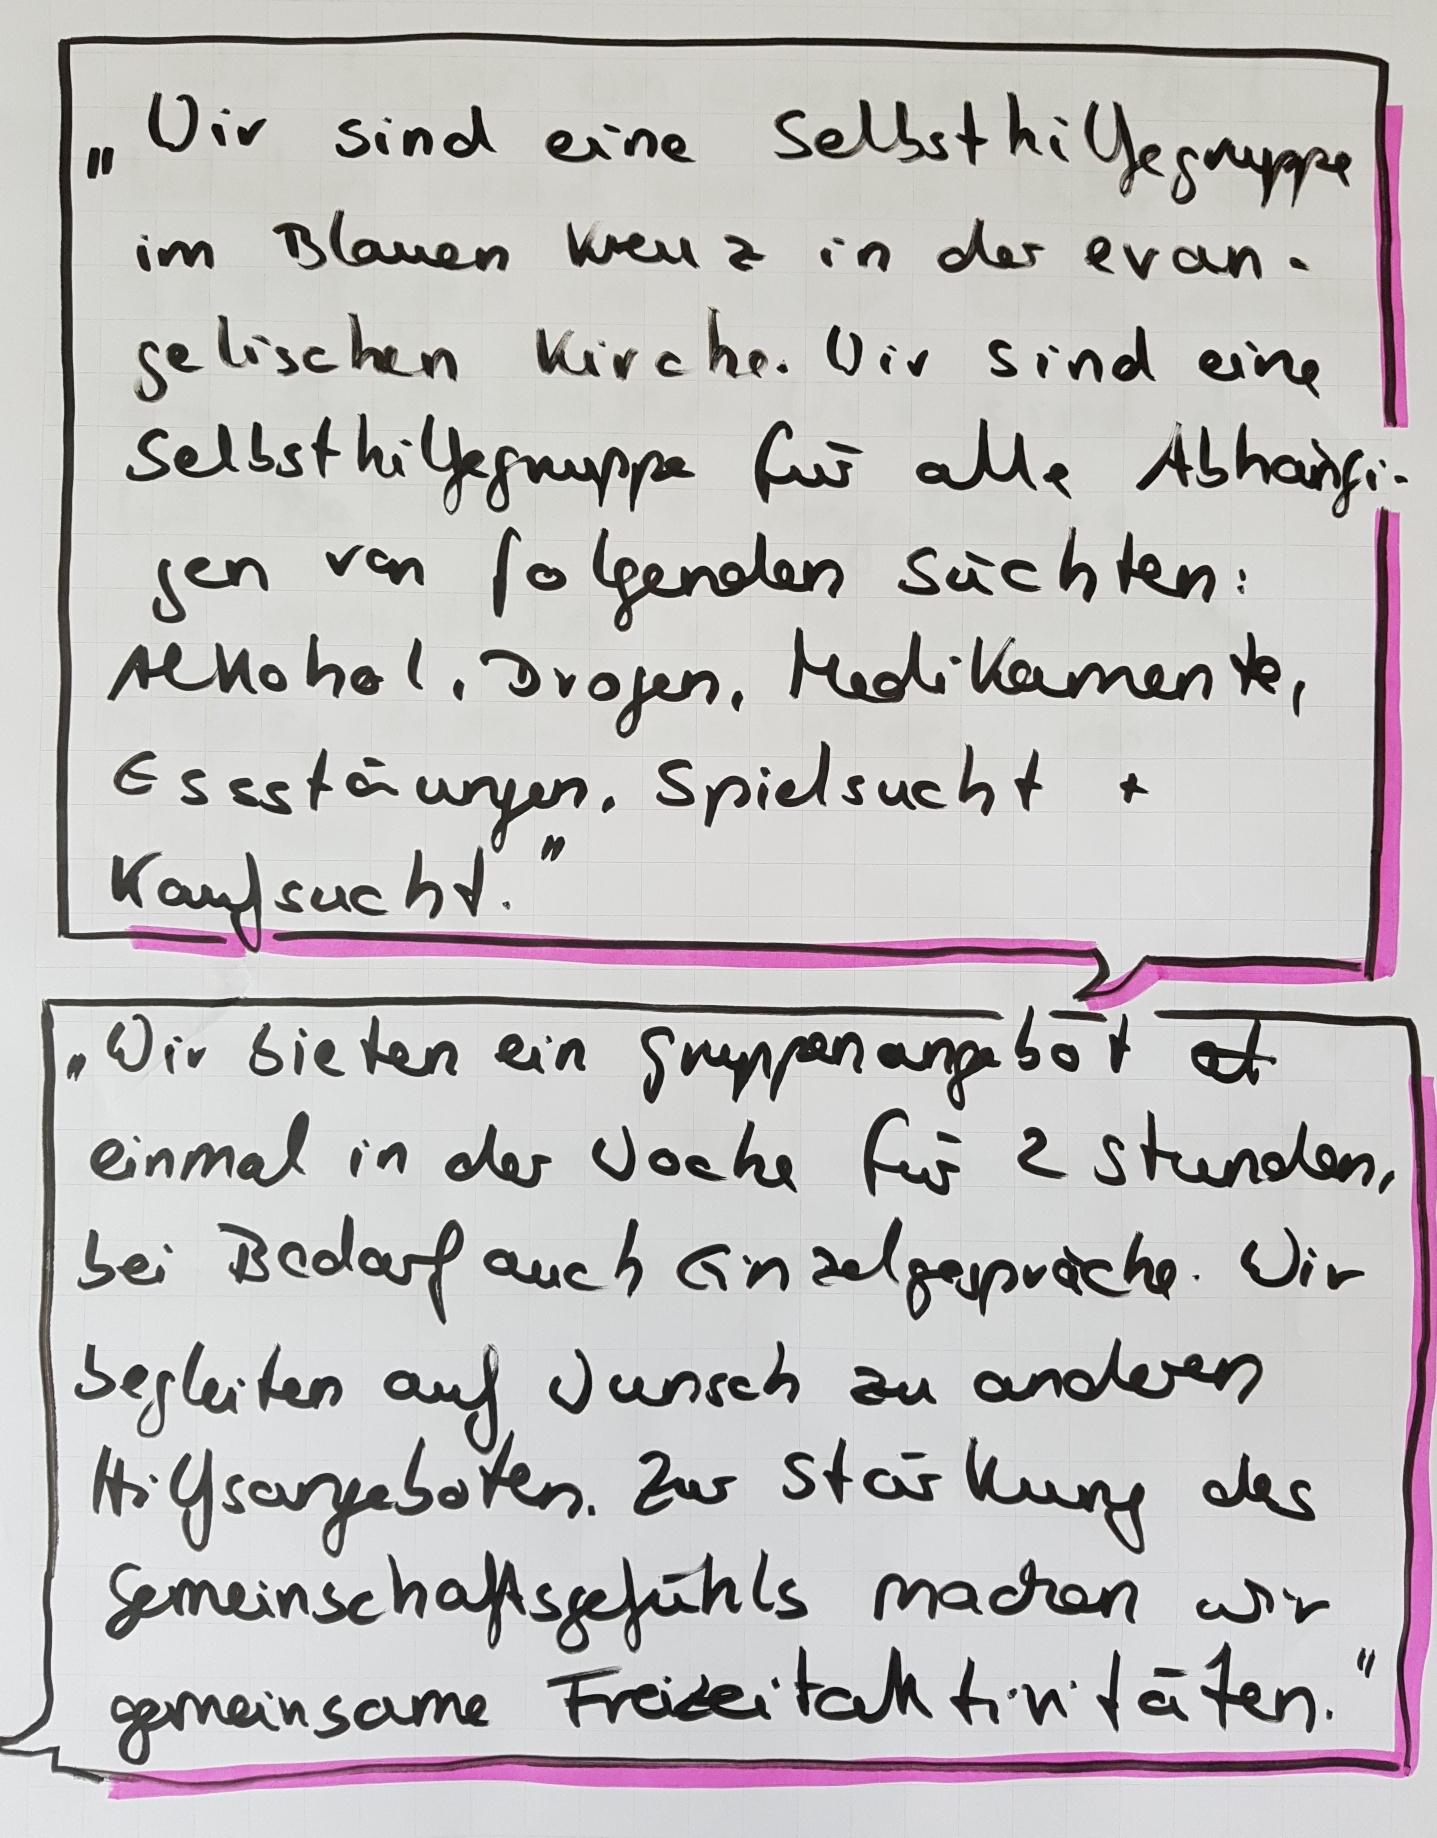 „Wir sind eine Selbsthilfegruppe
im Blauen Kreuz in der evan-
gelischen Kirche. Wir sind eine
Selbsthilfegruppe für alle Abhängi-
gen von folgenden Süchten:
Alkohol, Drogen, Medikamente,
Essstörungen, Spielsucht +
Kaufsucht."
„Wir bieten ein Gruppenangebot
einmal in der Woche für 2 Stunden,
bei Bedarf auch Einzelgespräche. Wir
begleiten auf Wunsch zu anderen
Hilfsangeboten. Zur Stärkung des
Gemeinschaftsgefühls machen wir
gemeinsame Freizeitaktivitäten."